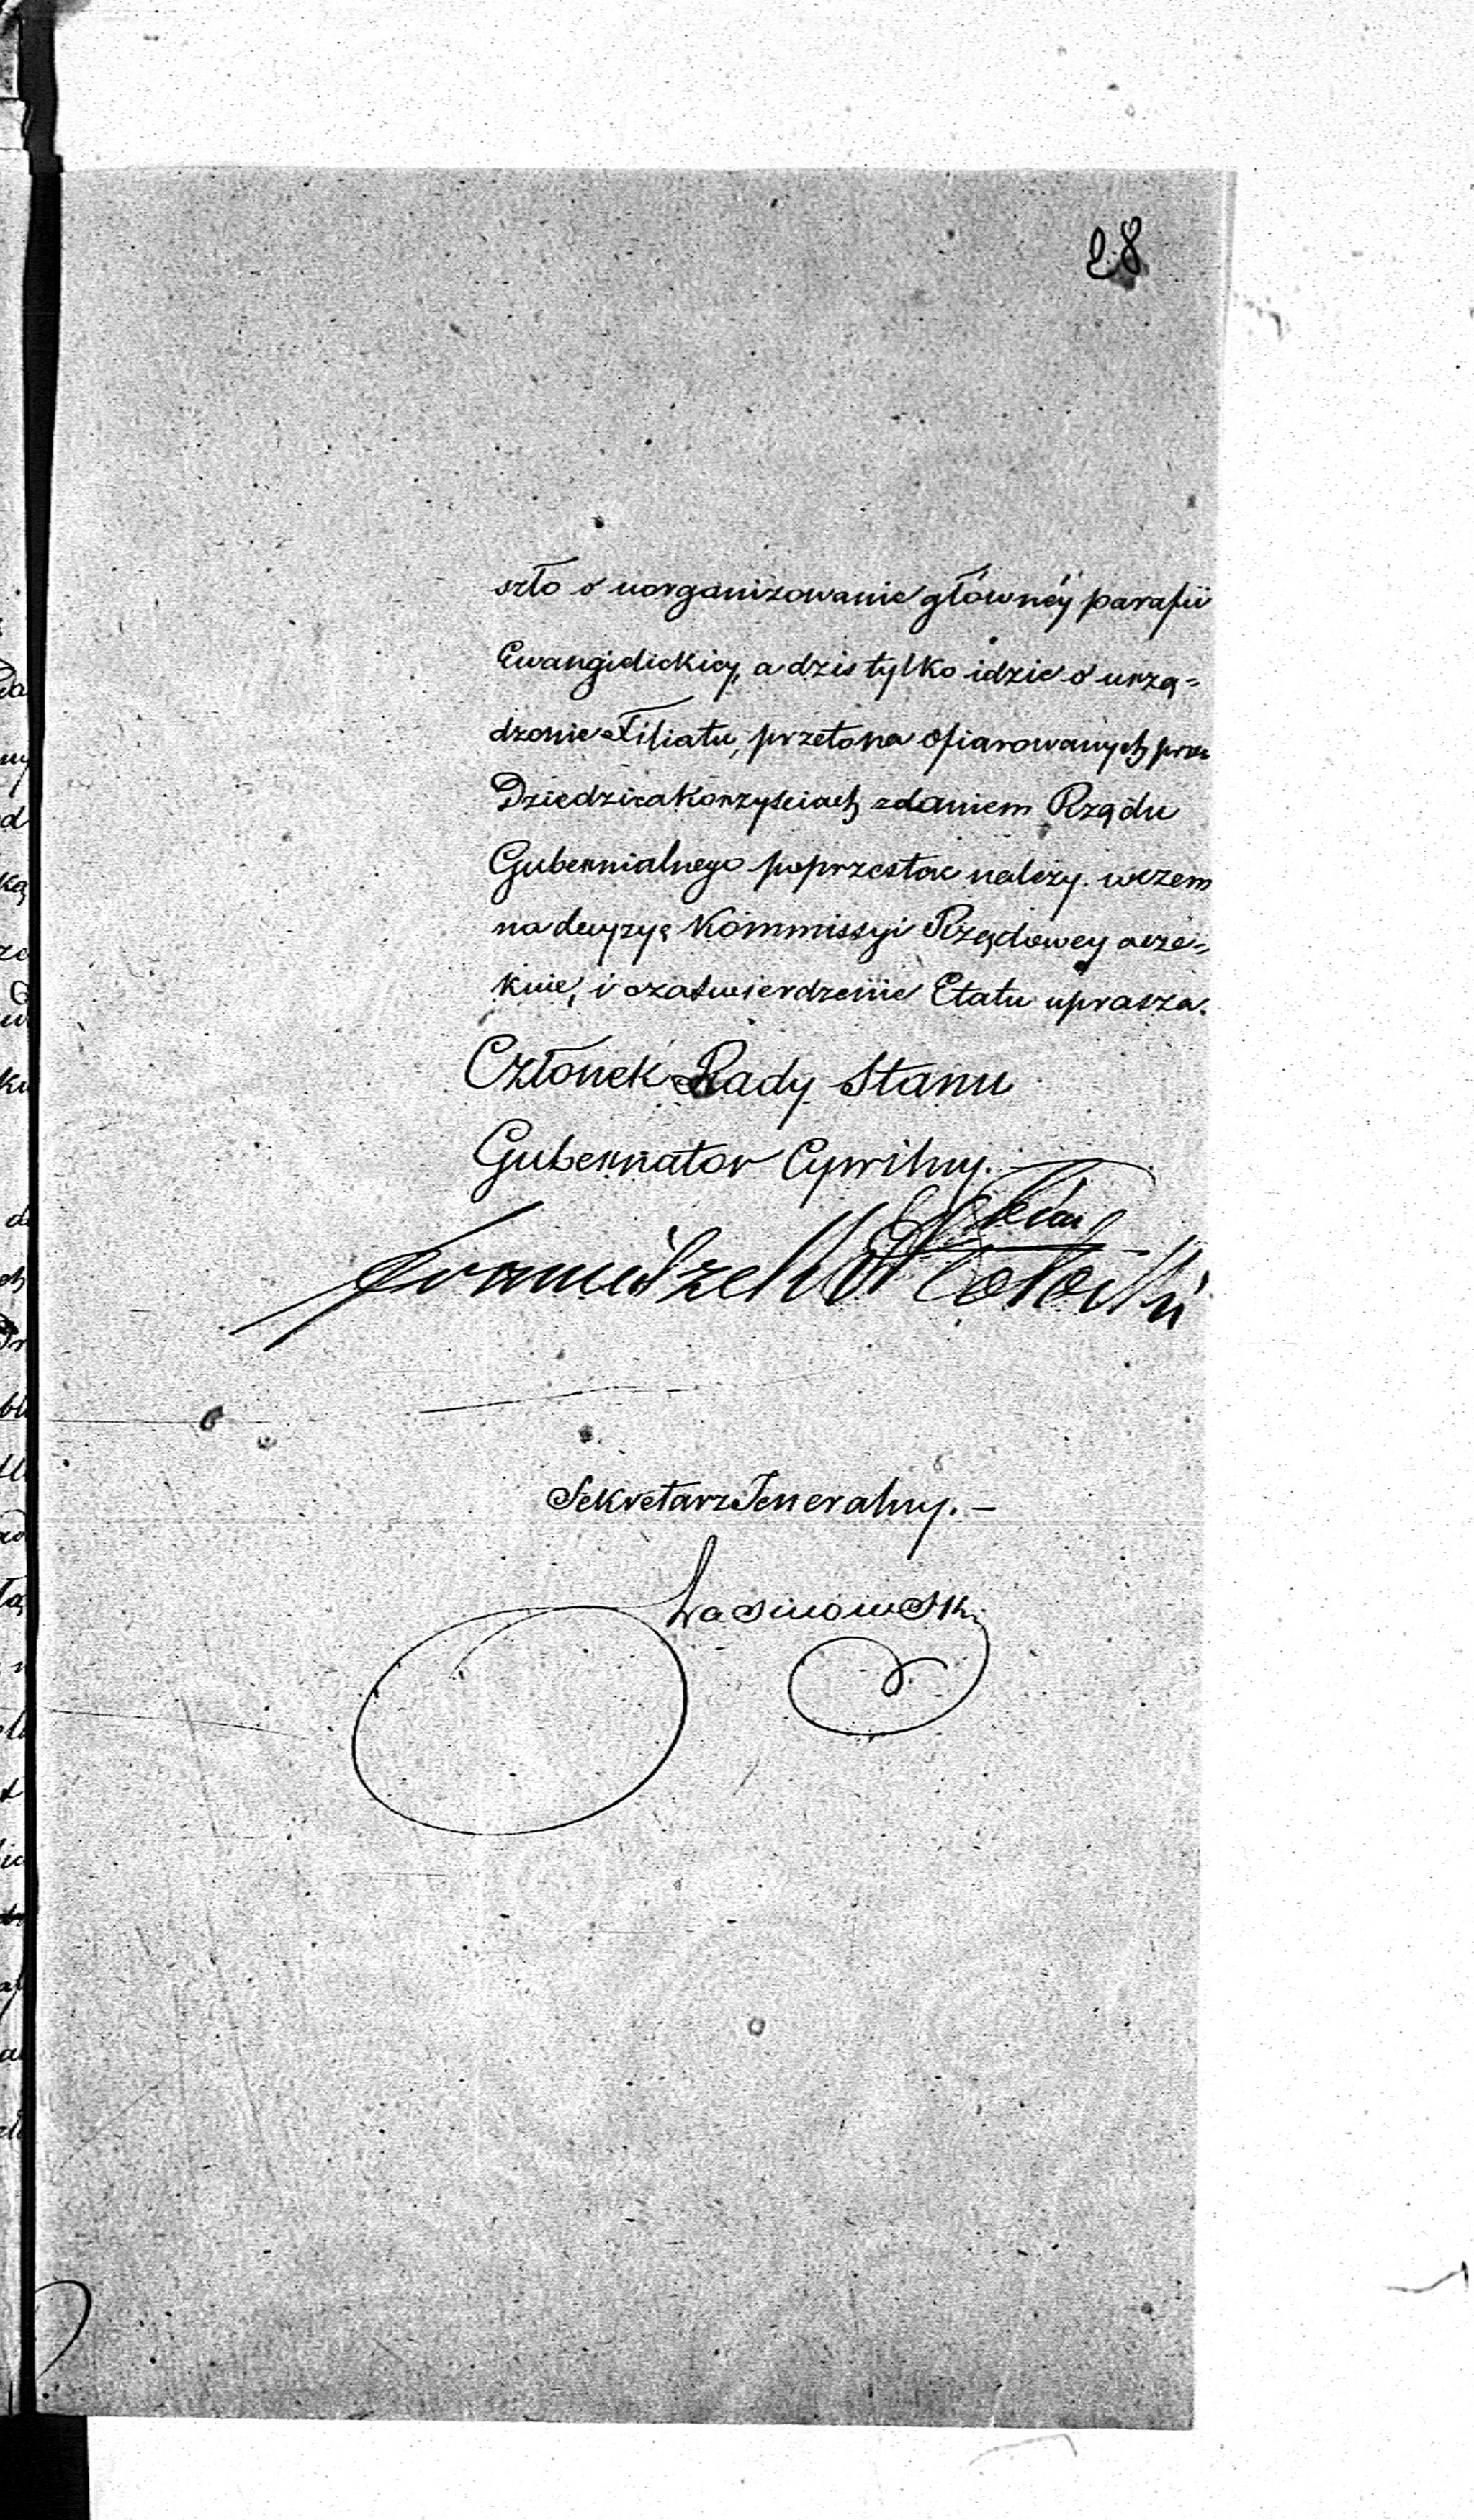 28
szło o uorganizowanie głównéy parafii
Ewangielickiey, a dzis tylko idzie o urzą=
dzenie Filiatu, przeto na ofiarowanych przez
Dziedzica korzyściach zdaniem Rządu
Gubernialnego poprzestac należy. wczem
na decyzyę Kommissyi Rządowey ocze=
kuie, i o zatwierdzenie Etatu uprasza.
Członek Rady Stanu
Gubernator Cywilny.
Franciszek Potocki
Sekretarz Jeneralny. —